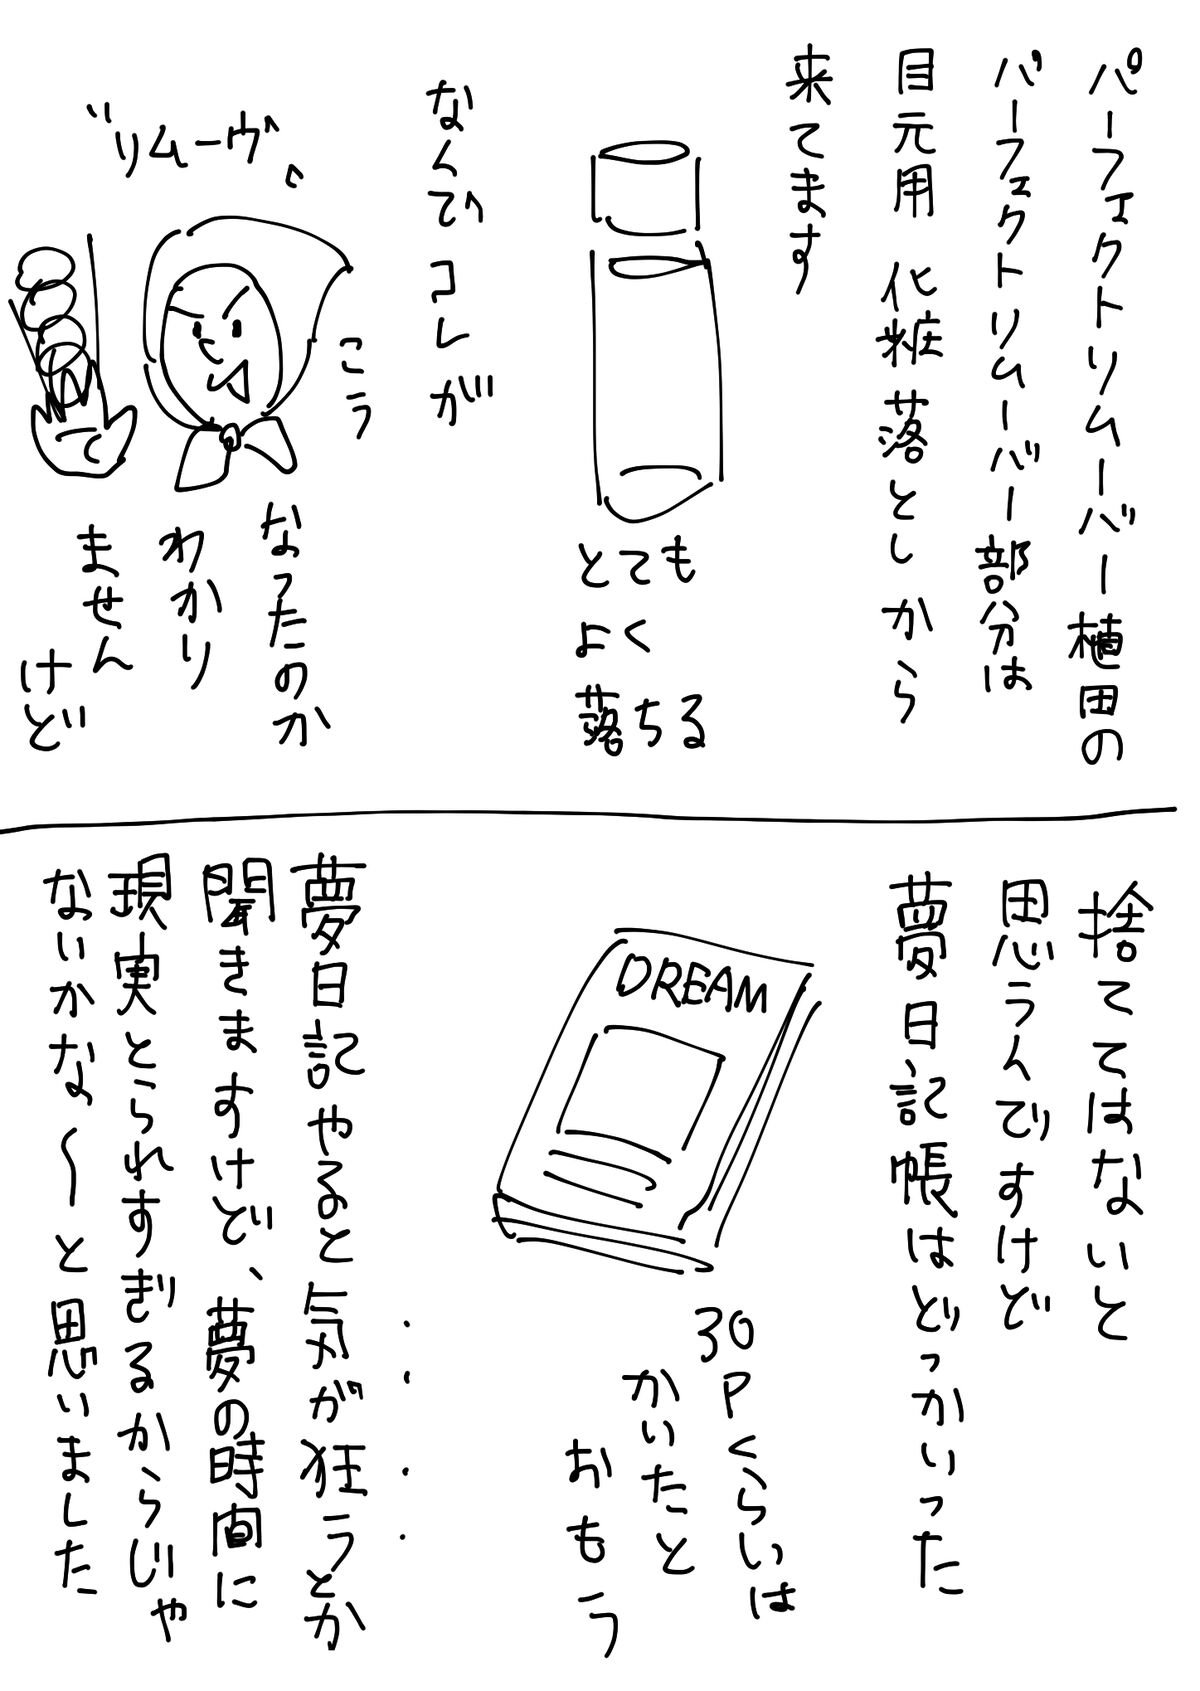 パーフェクトリムーバー植田の
パーフェクトリムーバー部分は
目元用化粧落としから
来てます
とても
よく
落ちる
なんでコレが
こう
"リムーヴ"
なったのか
わかり
ません
けど
捨ててはないと
思うんですけど
夢日記帳はどっかいった
DREAM
30
Pくらいは
かいたと
おもう
夢日記やると気が狂うとか
聞きますけど、夢の時間に
現実とられすぎるからじゃ
ないかな〜と思いました